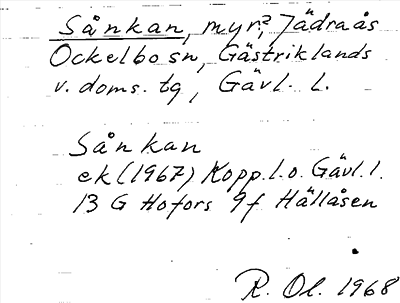 Sånkan, myr?, Jädraås
Ockelbo sn, Gästriklands
v. doms. tg, Gävl. L.
Sånkan
ek (1967) Kopp.l.o. Gävl.l.
13 G Hofors 9f Hällåsen
R. Ol. 1968